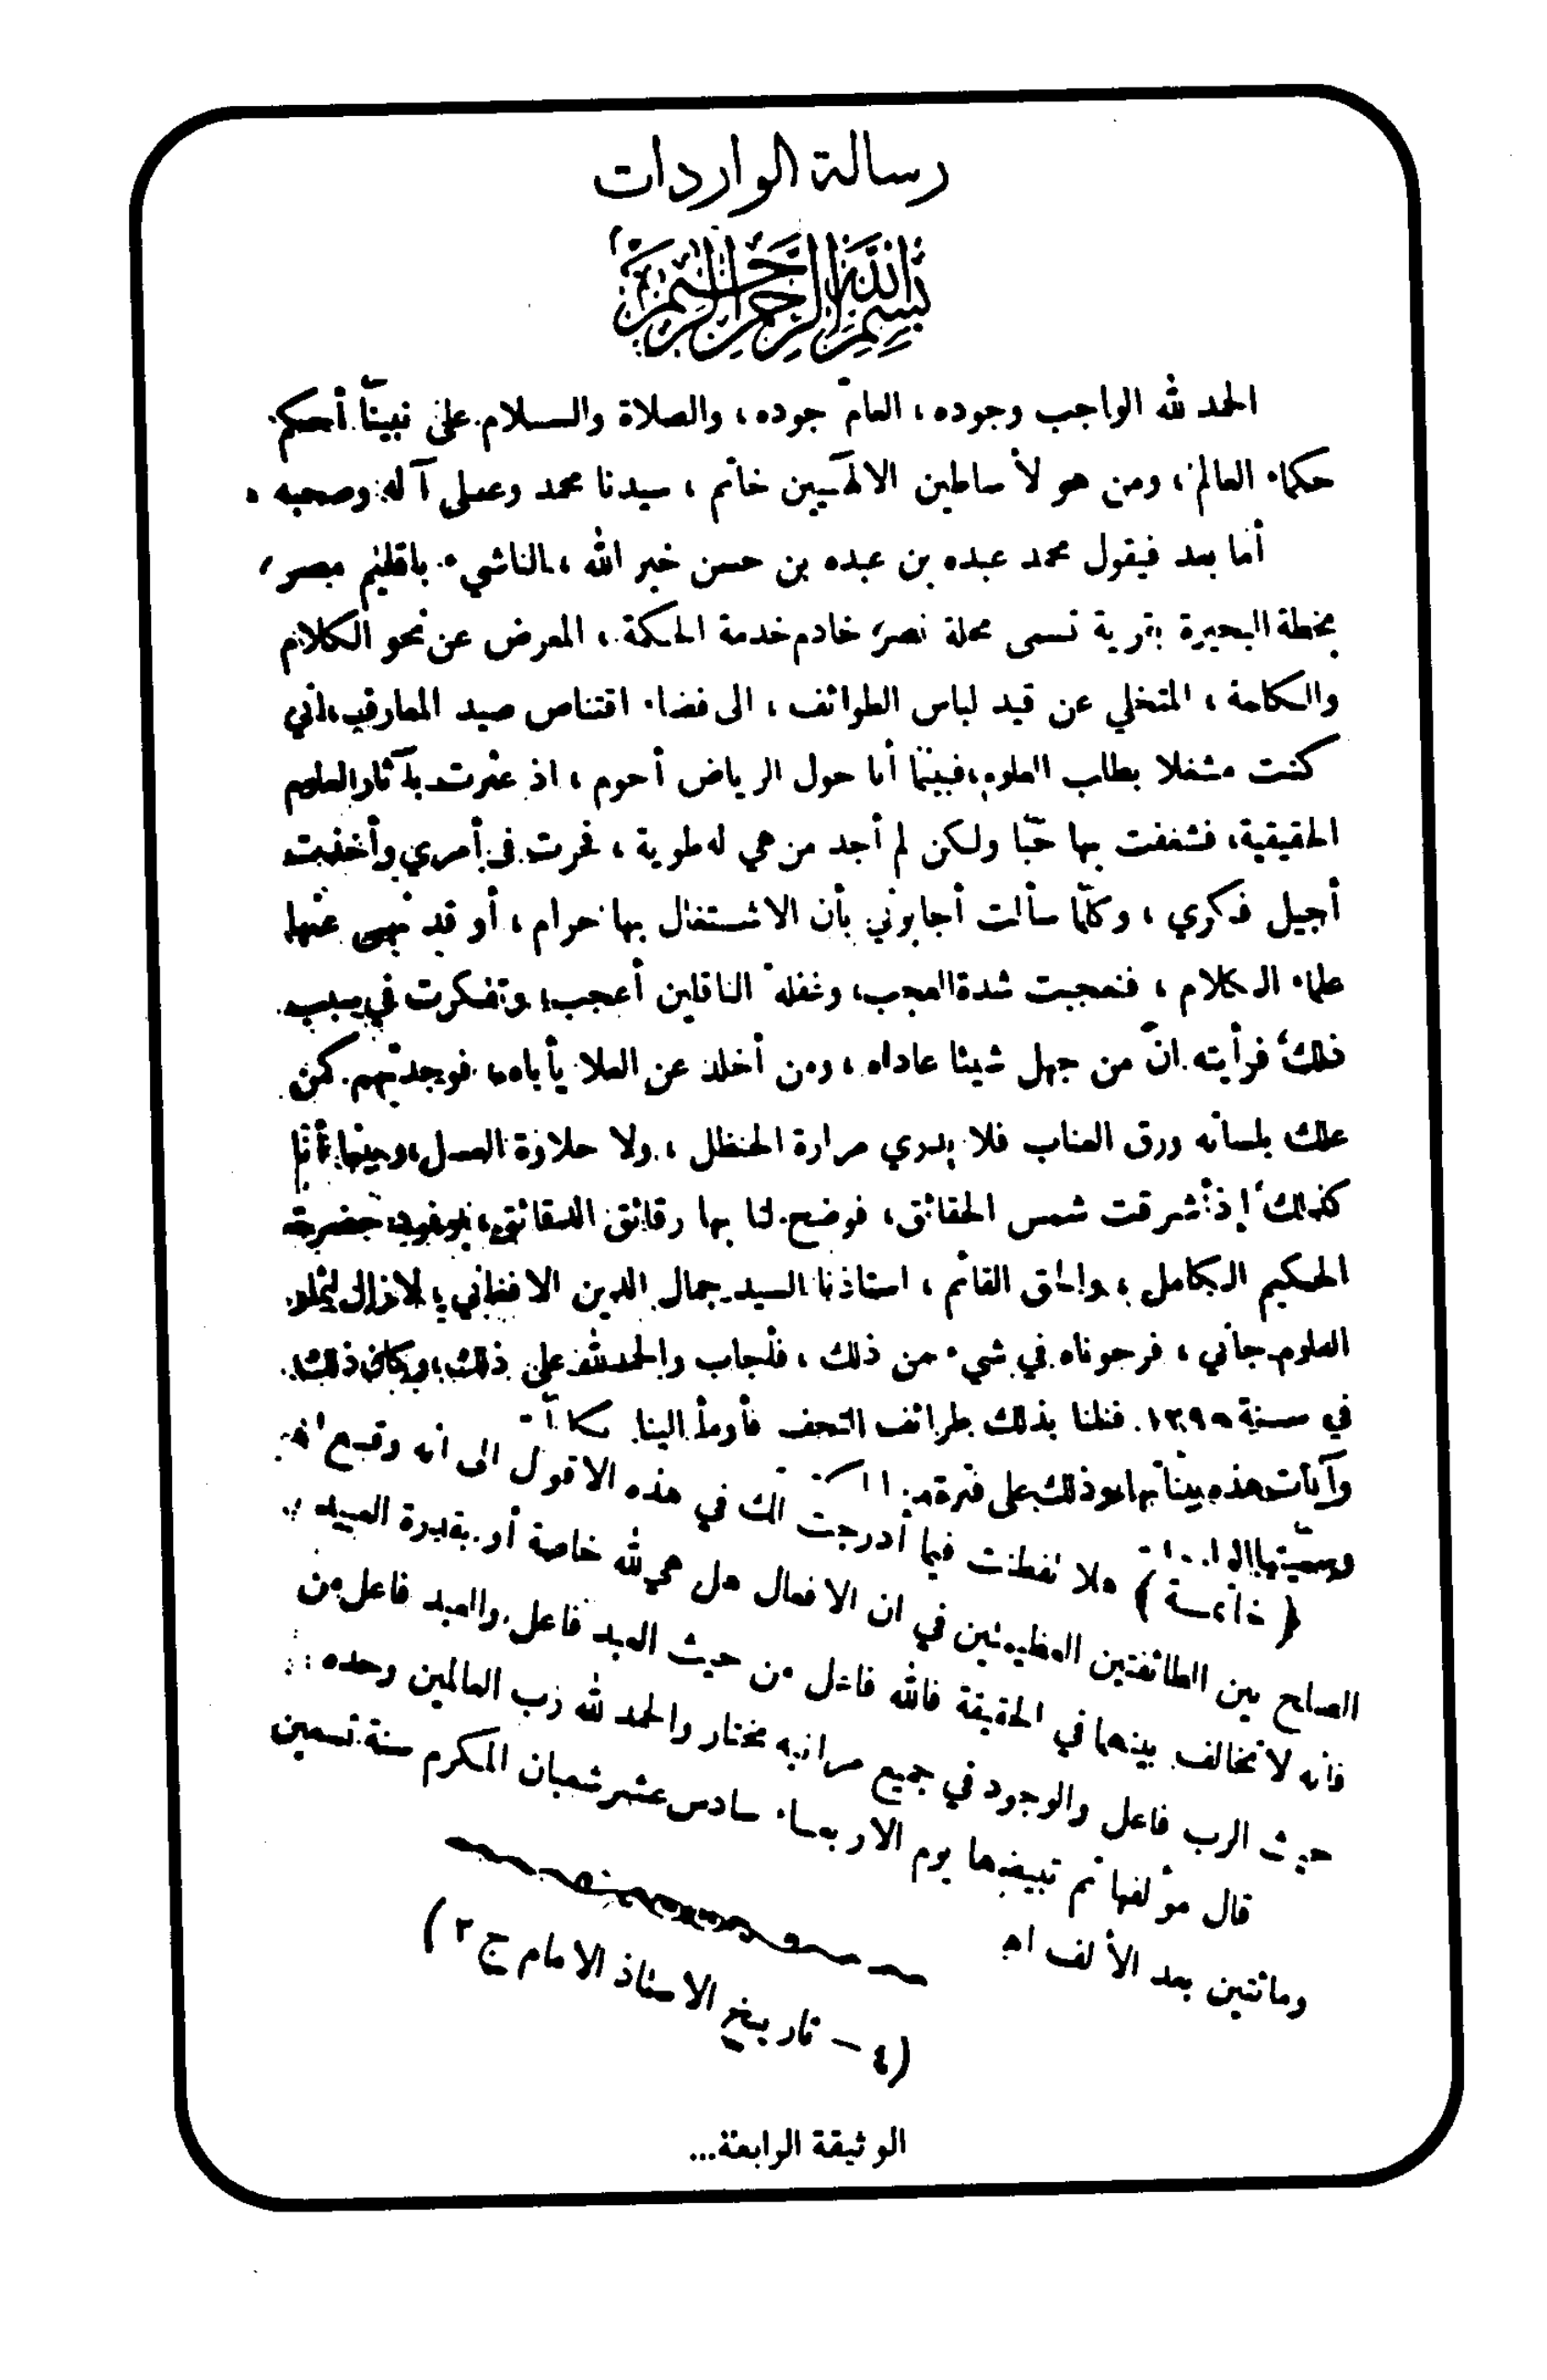 رسالة الواردات
بسم الله الرحمن الرحيم
الحمد لله الواجب وجوده ، العامّ جوده ، والصلاة والسلام على نبينّا أحكم
حكماء العالم ، ومن هو لأساطين الالٓهيين خاتم ، سيدنا محمد وعلى آله وصحبه .
أما بعد فيقول محمد عبده بن عبده بن حسن خير الله ، الناشيء باقليم مصر ،
بخطة البحيرة بقرية تسمى محلة نصر ، خادم خدمة الحكمة ، المعرض عن نحو الكلام
والكلمة ، المتخلي عن قيد لباس الطوائف ، الى فضاء اقتناص صيد المعارف ، اني
كنت مشغلا بطلب العلوم ، فبينما أنا حول الرياض أحوم ، اذ عثرت بآثار العلوم
الحقيقية ، فشغفت بها حبّا ولكن لم أجد من هي له طوية ، فحرت في أمري وأخذت
أجيل فكري ، وكلّما سألت أجابوني بأن الاشتغال بها حرام ، أو قد نهى عنها
علماء الكلام ، فتعجبت شدة العجب ، وغفلة الناقلين أعجب ، وتفكرت في سبب
ذلك ، فرأيته انّ من جهل شيئا عاداه ، ومن أخلد عن العلا يأباه ، فوجدتهم كمن
علك بلسانه ورق العناب فلا يدري مرارة الحنظل ، ولا حلاوة العسل ، وبينما أنا
كذلك ، إذ أشرقت شمس الحقائق ، فوضح لنا بها رقائق الدقائق ، بوفود حضرة
الحكيم الكامل ، والحق القائم ، استاذنا السيد جمال الدين الافغاني ، لا زال لثمار
العلوم جاني ، فرجوناه في شيء من ذلك ، فأجاب والحمد لله على ذلك ، وكان ذلك
في سنة ١٢٩٠ فنلنا بذلك طرائف التحف فأومأ الينا
وآيات هذه بيناتها وذلك على فترة من
وسميتها
﴿ خاتمة ﴾ هلا تفطنت فيما أدرجت لك في هذه الاقول الى انه وقع
الصلح بين الطائفتين العظيمتين في ان الافعال هل هي لله خاصة أو بقدرة العبيد
فانه لا تخالف بينهما في الحقيقة فالله فاعل من حيث العبد فاعل والعبد فاعل من
حيث الرب فاعل والوجود في جميع مراتبه مختار والحمد لله رب العالمين وحده
قال مؤلفها تم تبييضها يوم الاربعاء سادس عشر شعبان المكرم سنة تسعين
ومائتين بعد الألف اه
(٤ — تاريخ الاستاذ الامام ج ٢)
الوثيقة الرابعة...